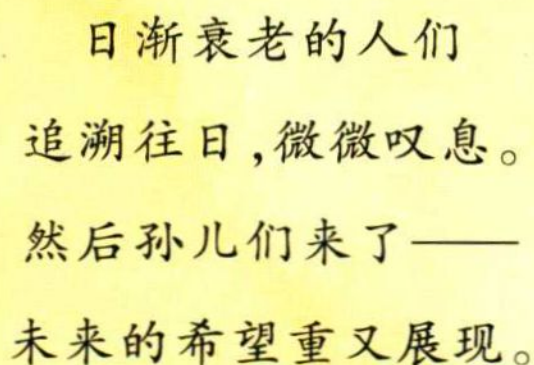 日渐衰老的人们
追溯往日,微微叹息。
然后孙儿们来了——
未来的希望重又展现。